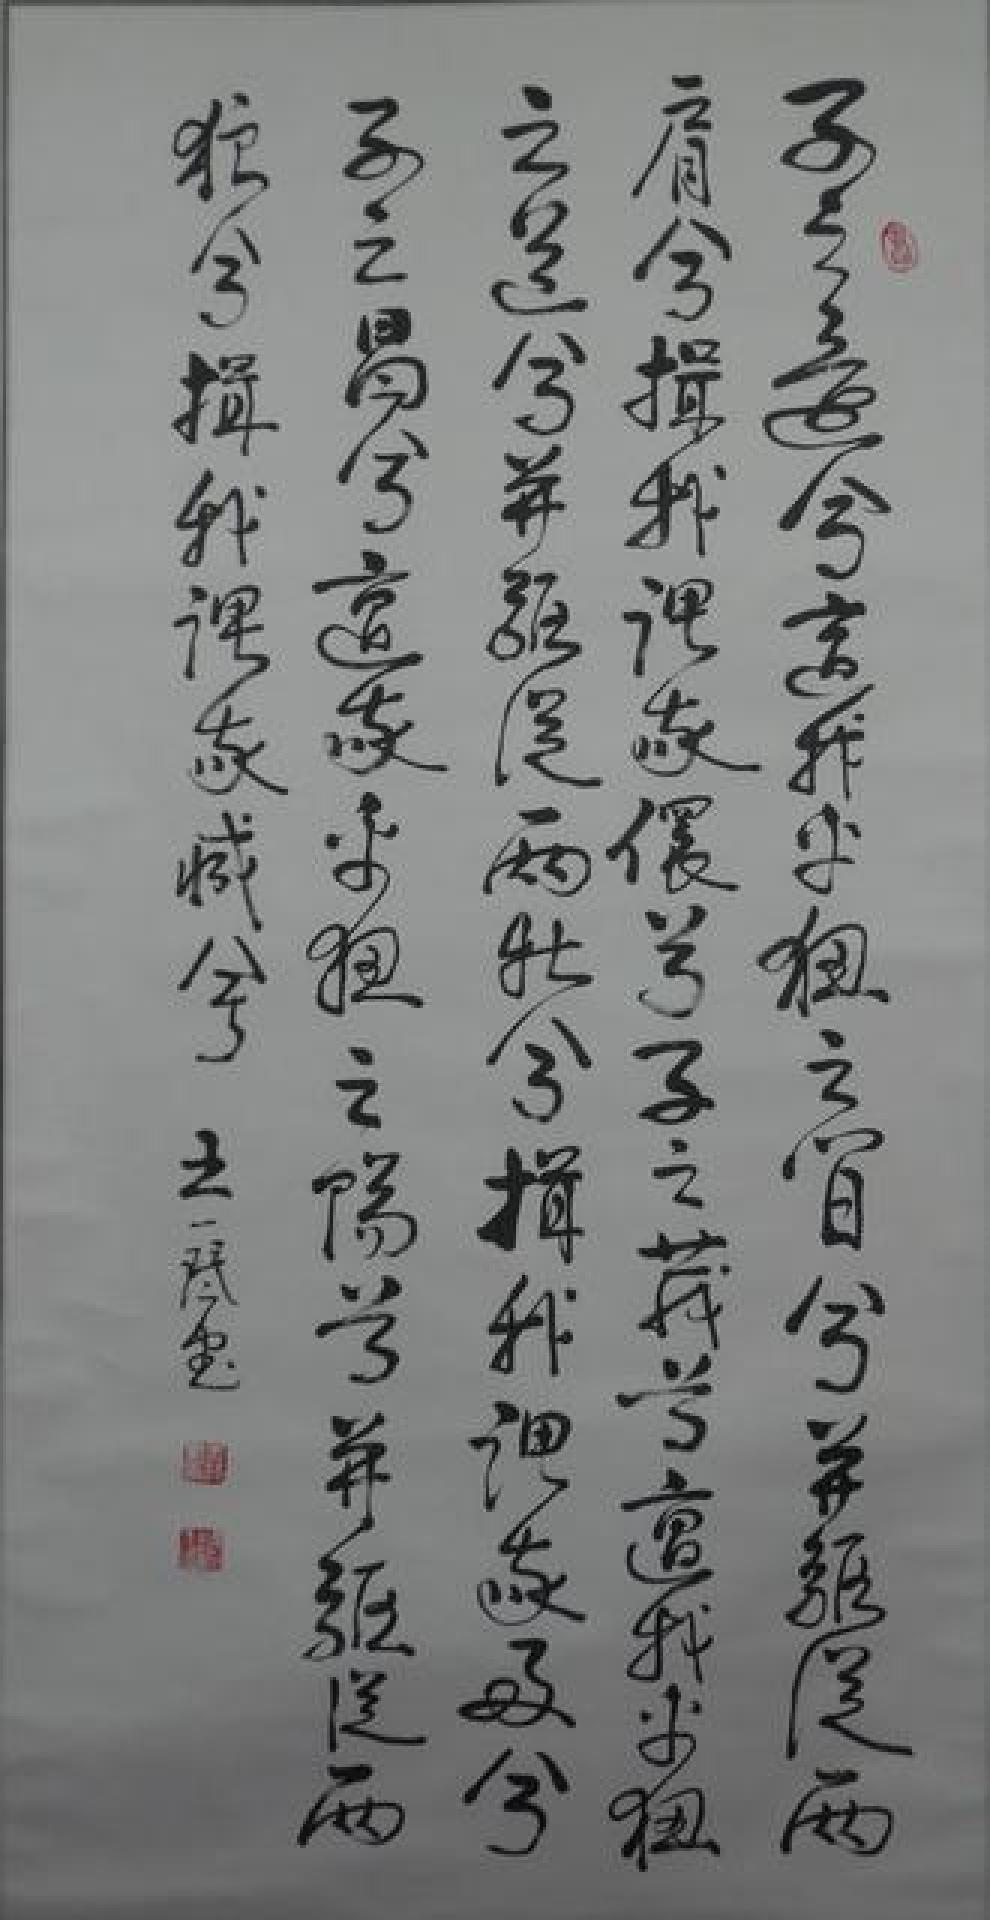 子之還兮遭我乎峱之間兮并驅從兩
肩兮揖我謂我儇兮子之茂兮遭我乎峱
之道兮并驅從兩牡兮揖我謂我好兮
子之昌兮遭我乎峱之陽兮并驅從兩
狼兮揖我謂我臧兮 王一琴書